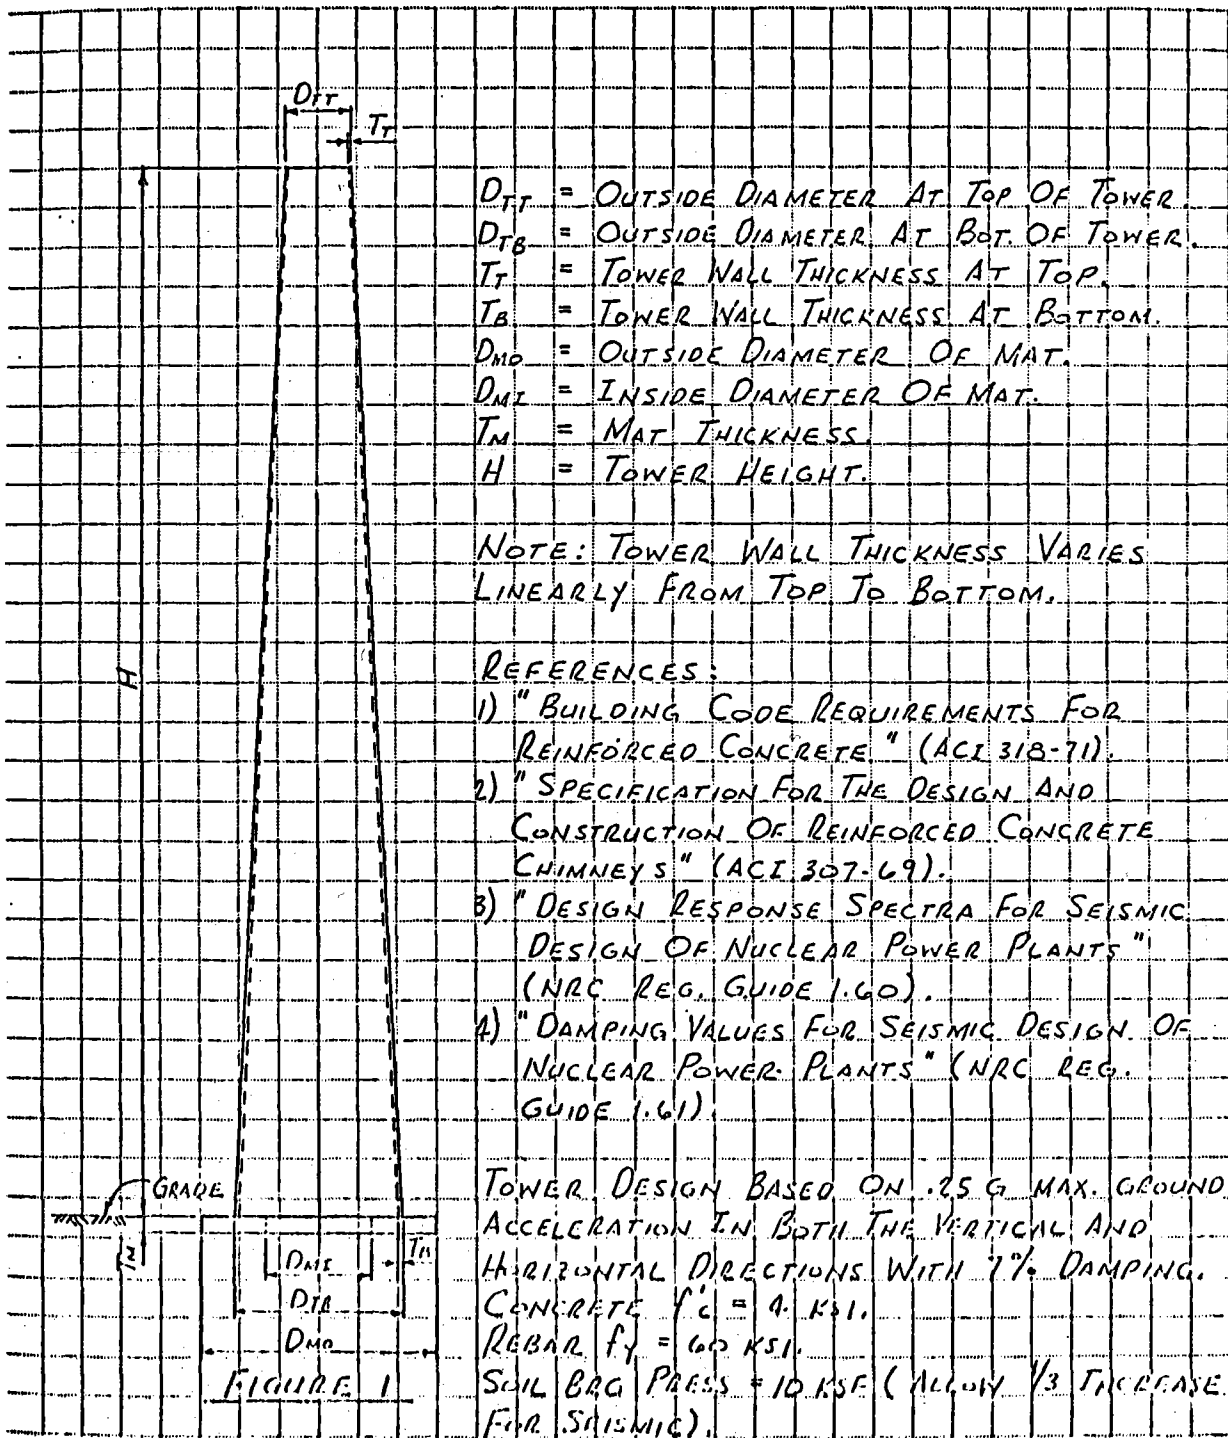 D_TT
T_T
D_TT = OUTSIDE DIAMETER AT TOP OF TOWER.
D_TB = OUTSIDE DIAMETER AT BOT. OF TOWER.
T_T = TOWER WALL THICKNESS AT TOP.
T_B = TOWER WALL THICKNESS AT BOTTOM.
D_MO = OUTSIDE DIAMETER OF MAT.
D_MI = INSIDE DIAMETER OF MAT.
T_M = MAT THICKNESS.
H = TOWER HEIGHT.
NOTE: TOWER WALL THICKNESS VARIES
LINEARLY FROM TOP TO BOTTOM.
H
REFERENCES:
1) "BUILDING CODE REQUIREMENTS FOR
REINFORCED CONCRETE" (ACI 318-71).
2) "SPECIFICATION FOR THE DESIGN AND
CONSTRUCTION OF REINFORCED CONCRETE
CHIMNEYS" (ACI 307-69).
3) "DESIGN RESPONSE SPECTRA FOR SEISMIC
DESIGN OF NUCLEAR POWER PLANTS"
(NRC REG. GUIDE 1.60).
4) "DAMPING VALUES FOR SEISMIC DESIGN OF
NUCLEAR POWER PLANTS" (NRC REG.
GUIDE 1.61).
GRADE
T_M
D_MI
T_B
D_TB
D_MO
FIGURE 1
TOWER DESIGN BASED ON .25 G MAX. GROUND
ACCELERATION IN BOTH THE VERTICAL AND
HORIZONTAL DIRECTIONS WITH 7% DAMPING.
CONCRETE f'c = 4. KSI.
REBAR fy = 60 KSI.
SOIL BRG PRESS = 10 KSF (ALLOW 1/3 INCREASE
FOR SEISMIC).